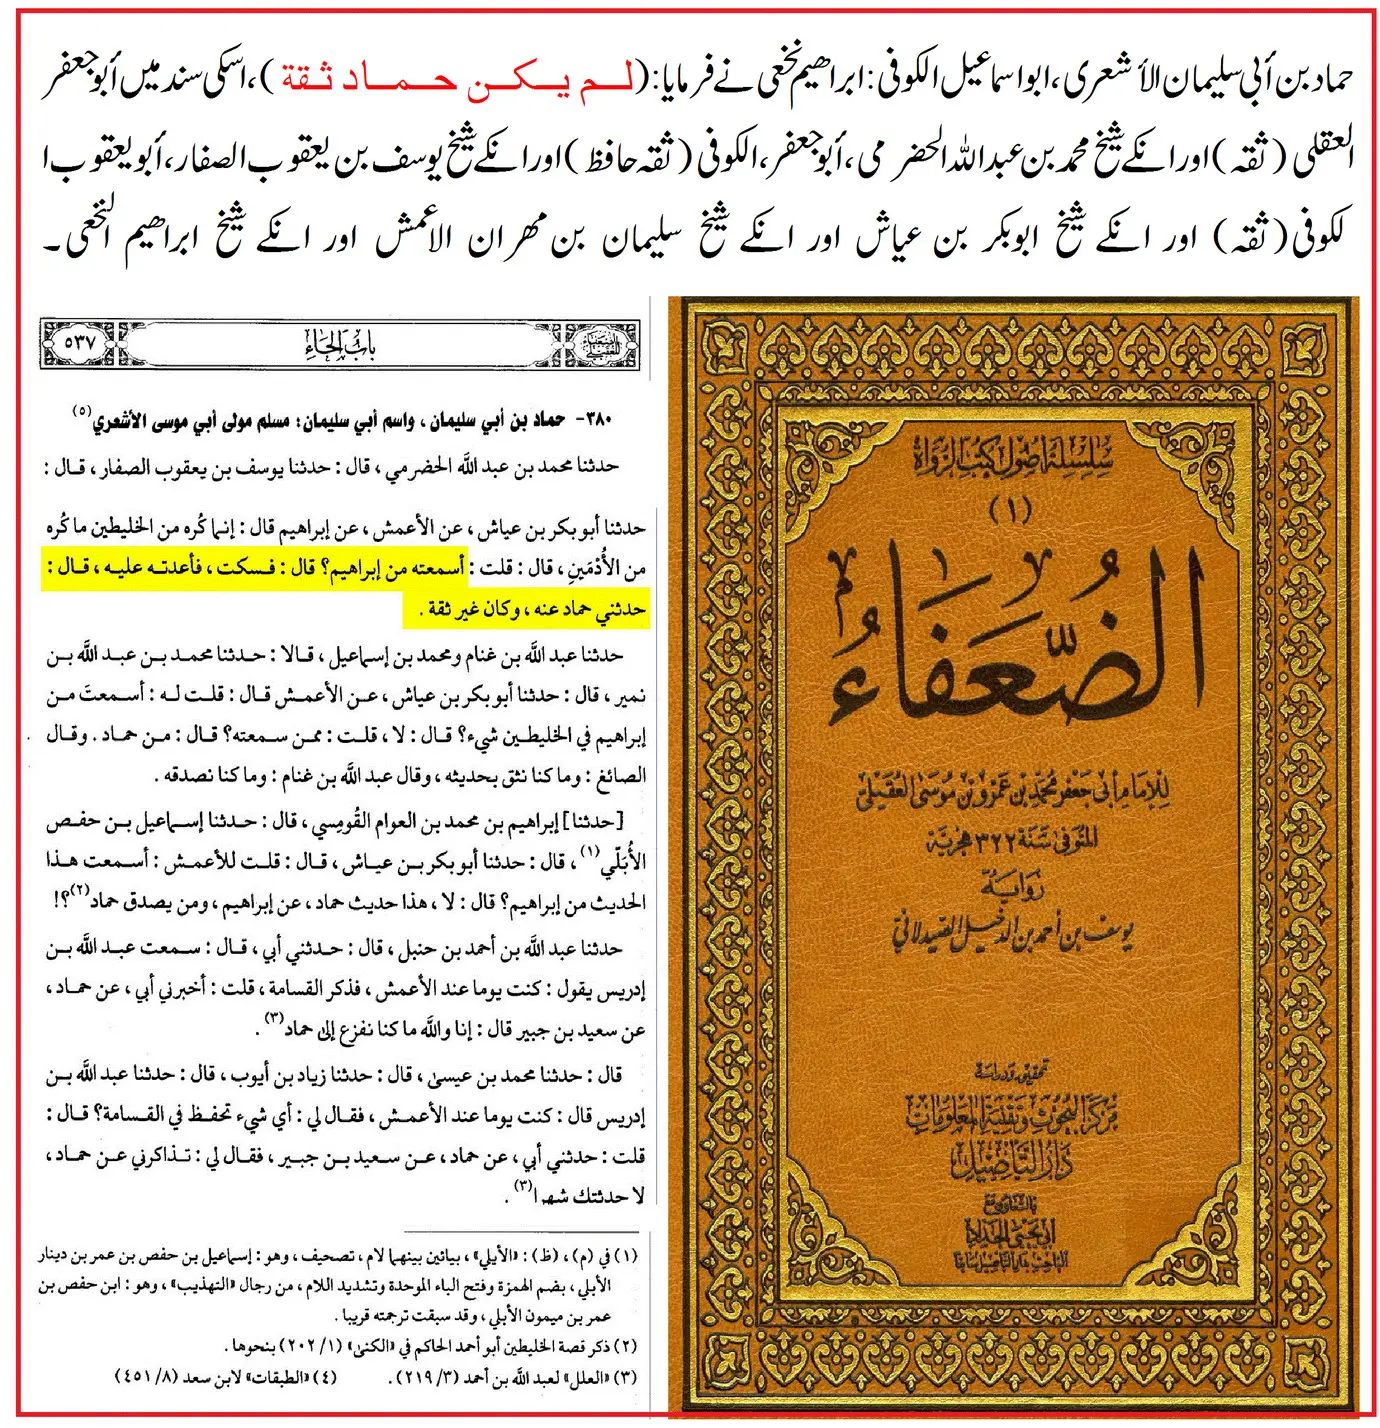 حماد بن أبي سليمان الأشعری، ابو اسماعیل الکوفی: ابراھیم نخعی نے فرمایا: (لم یکن حماد ثقة)، اسکی سند میں أبو جعفر
العقلی (ثقہ) اور انکے شیخ محمد بن عبداللہ الحضرمی، أبو جعفر، الکوفی (ثقہ حافظ) اور انکے شیخ یوسف بن یعقوب الصفار، أبو یعقوب ا
لکوفی (ثقہ) اور انکے شیخ ابوبکر بن عیاش اور انکے شیخ سلیمان بن مھران الاعمش اور انکے شیخ ابراھیم النخعی۔
باب الحاء
٥٣٧
٣٨٠- حماد بن أبي سليمان، واسم أبي سليمان: مسلم مولى أبي موسى الأشعري(٥)
حدثنا محمد بن عبد الله الحضرمي، قال: حدثنا يوسف بن يعقوب الصفار، قال:
حدثنا أبو بكر بن عياش، عن الأعمش، عن إبراهيم قال: إنما كُره من الخليطين ما كُره
من الأُدْمَينِ، قال: قلت: أسمعته من إبراهيم؟ قال: فسكت، فأعدته عليه، قال:
حدثني حماد عنه، وكان غير ثقة.
حدثنا عبد الله بن غنام ومحمد بن إسماعيل، قالا: حدثنا محمد بن عبد الله بن
نمير، قال: حدثنا أبو بكر بن عياش، عن الأعمش قال: قلت له: أسمعتَ من
إبراهيم في الخليطين شيء؟ قال: لا، قلت: ممن سمعته؟ قال: من حماد. وقال
الصائغ: وما كنا نثق بحديثه، وقال عبد الله بن غنام: وما كنا نصدقه.
[حدثنا] إبراهيم بن محمد بن العوام القُومِسي، قال: حدثنا إسماعيل بن حفص
الأُبَلّي(١)، قال: حدثنا أبو بكر بن عياش، قال: قلت للأعمش: أسمعت هذا
الحديث من إبراهيم؟ قال: لا، هذا حديث حماد، عن إبراهيم، ومن يصدق حماد(٢)؟!
حدثنا عبد الله بن أحمد بن حنبل، قال: حدثني أبي، قال: سمعت عبد الله بن
إدريس يقول: كنت يوما عند الأعمش، فذكر القسامة، قلت: أخبرني أبي، عن حماد،
عن سعيد بن جبير قال: إنا والله ما كنا نفزع إلى حماد(٣).
قال: حدثنا محمد بن عيسى، قال: حدثنا زياد بن أيوب، قال: حدثنا عبد الله بن
إدريس قال: كنت يوما عند الأعمش، فقال لي: أي شيء تحفظ في القسامة؟ قال:
قلت: حدثني أبي، عن حماد، عن سعيد بن جبير، فقال لي: تذاكرني عن حماد،
لا حدثتك شهرا(٣).
(١) في (م)، (ظ): «الأيلي»، بيائين بينهما لام، تصحيف، وهو: إسماعيل بن حفص بن عمر بن دينار
الأبلي، بضم الهمزة وفتح الباء الموحدة وتشديد اللام، من رجال «التهذيب»، وهو: ابن حفص بن
عمر بن ميمون الأبلي، وقد سبقت ترجمته قريبا.
(٢) ذكر قصة الخليطين أبو أحمد الحاكم في «الكنى» (١/٢٠٢) بنحوها.
(٣) «العلل» لعبد الله بن أحمد (٣/٢١٩). (٤) «الطبقات» لابن سعد (٨/٤٥١)
سلسلة أصول كتب الرواة
(١)
الضعفاء
للإمام أبي جعفر محمد بن عمرو بن موسى العقيلي
المتوفى سنة ٣٢٢ هجرية
رواية
يوسف بن أحمد بن الدخيل الصيدلاني
تحقيق ودراسة
مركز البحوث وتقنية المعلومات
دار التأصيل
بالتعاون مع
أبي يحيى الحداد
الباحث بدار التأصيل سابقا